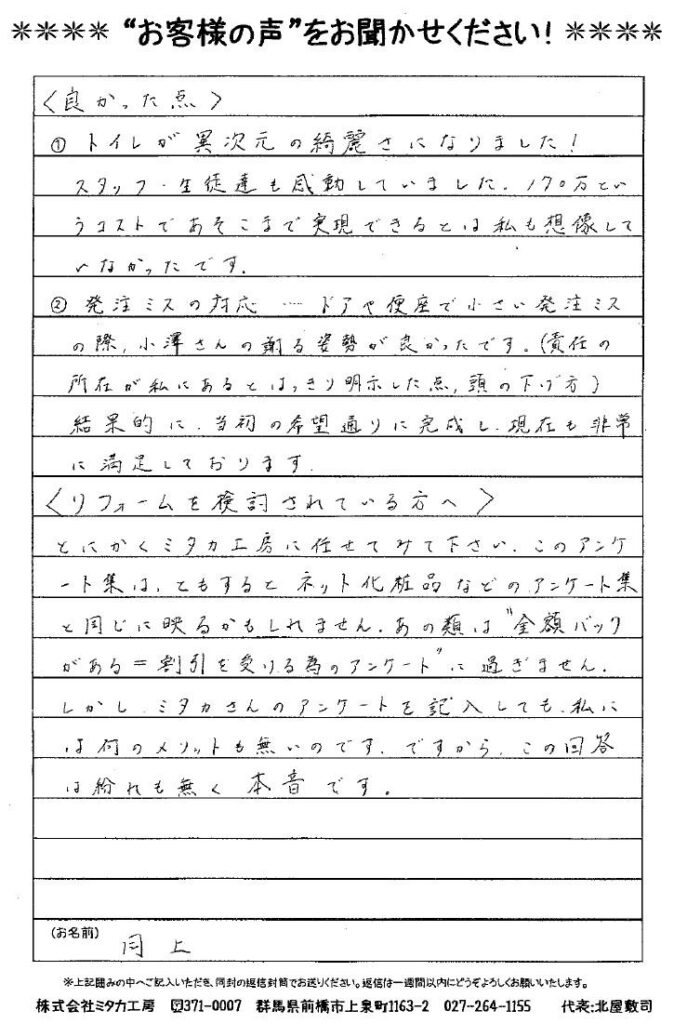 ＊＊＊＊ “お客様の声”をお聞かせください！ ＊＊＊＊
＜良かった点＞
① トイレが異次元の綺麗さになりました！
スタッフ・生徒達も感動していました。170万とい
うコストであそこまで実現できるとは私も想像して
いなかったです。
② 発注ミスの対応 … ドアや便座で小さい発注ミス
の際、小澤さんの謝る姿勢が良かったです。（責任の
所在が私にあるとはっきり明示した点、頭の下げ方）
結果的に、当初の希望通りに完成し、現在も非常
に満足しております。
＜リフォームを検討されている方へ＞
とにかくミタカ工房に任せてみて下さい。このアンケ
ート集は、ともすると ネット化粧品などのアンケート集
と同じに映るかもしれません。あの類は“全額バック
がある＝割引を受ける為のアンケート”に過ぎません。
しかし、ミタカさんのアンケートを記入しても、私に
は何のメリットも無いのです。ですから、この回答
は紛れも無く 本音です。
（お名前） 同上
※上記囲みの中へご記入いただき、同封の返信封筒でお送りください。返信は一週間以内にどうぞよろしくお願いいたします。
株式会社ミタカ工房 〒371-0007 群馬県前橋市上泉町1163-2 027-264-1155 代表:北屋敷司